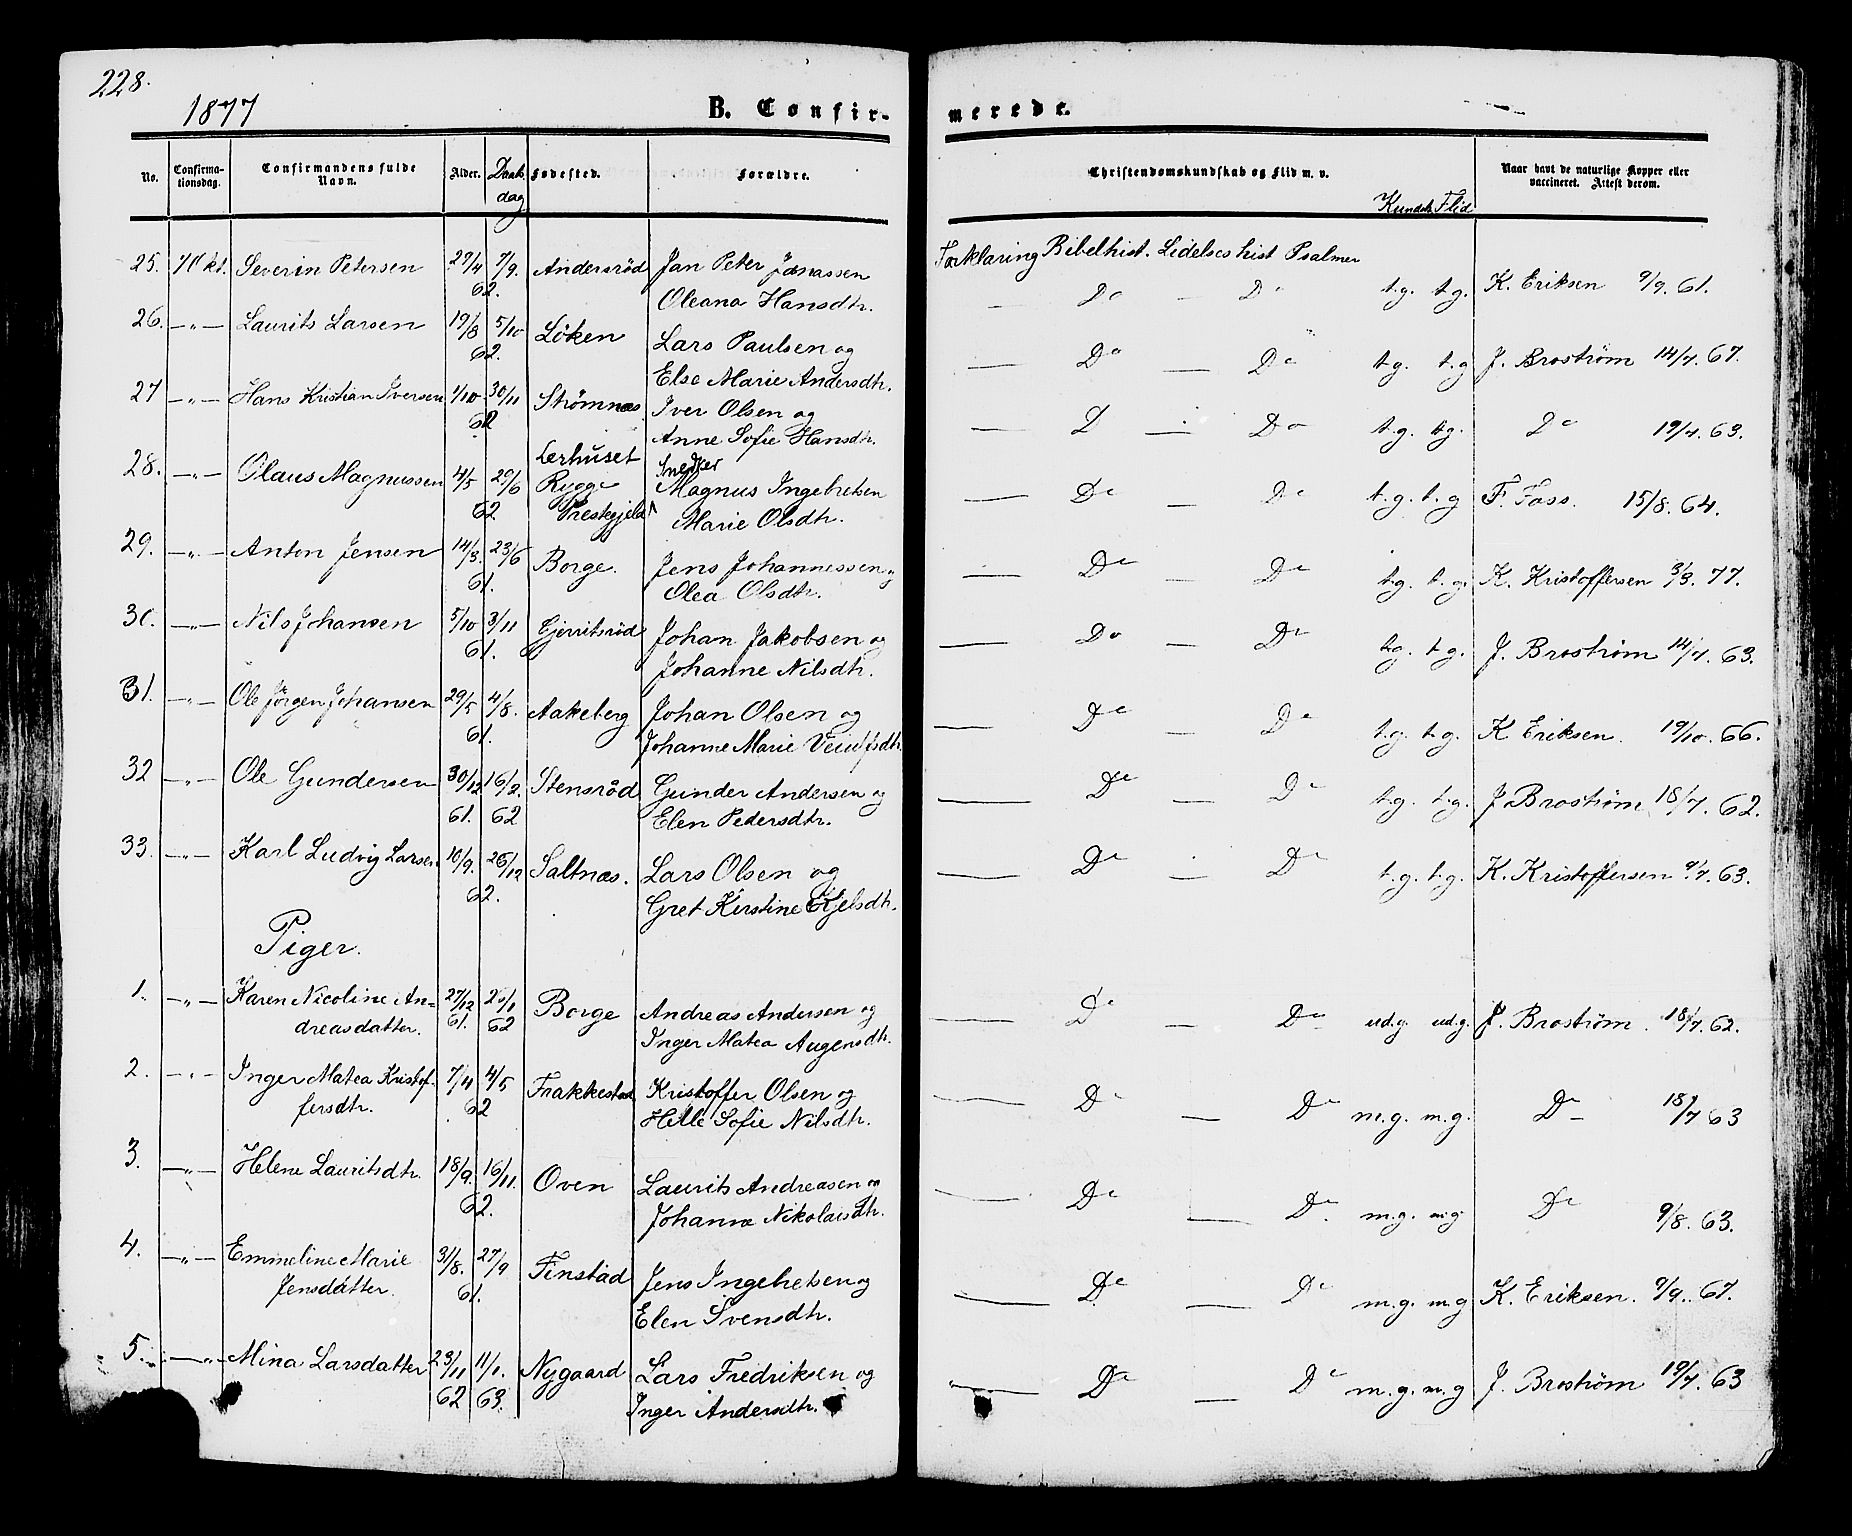 228.
1877
B. Confirmerede.
No. Confirmationsdag. Confirmandens fulde Navn. Alder. Daabsdag Fødested. Forældre. Christendomskundskab og Flid m. v. Kundsk. Flid Naar havt de naturlige Kopper eller vaccineret. Attest derom.
25. 7/Okt. Severin Petersen 27/4 62. 7/9. Andersrød Jan Peter Jonassen
Oleana Hansdtr. Forklaring Bibelhist. Lidelseshist Psalmer
— Do — Do t.g. t.g. K. Eriksen 9/9. 61.
26. —"— Laurits Larsen 19/8 5/10 62. Löken Lars Paulsen og
Else Marie Andersdtr. — Do — Do t.g. t.g J. Broström 14/7. 67.
27 —"— Hans Kristian Iversen 1/10 30/11 62 Strømnæs. Iver Olsen og
Anne Sofie Hansdtr. — D — Do t.g. t.g. Do 19/7. 63.
28. —"— Olaus Magnussen 4/5 29/6 62 Lerhuset Rygge Prestegjeld Snedker
Magnus Ingebretsen
Marie Olsdtr. — Do — Do t.g. t.g F. Foss. 15/8. 64.
29. —"— Anton Jensen 14/3. 23/6 61. Borge. Jens Johannessen og
Olea Olsdtr. — Do — Do t.g. t.g. K. Kristoffersen 3/3. 77.
30. —"— Nils Johansen 5/10 3/11 61. Gjerritsrød Johan Jakobsen og
Johanne Nilsdtr. — Do — Do t.g. t.g. J. Broström 14/7. 63.
31. —"— Ole Jörgen Johansen 29/5 4/8. 61. Aakeberg Johan Olsen og
Johanne Marie — Do — Do t.g. t.g. K Eriksen. 19/10. 66.
32 —"— Ole Gundersen 30/12 61. 16/2. 62 Stensrød Gunder Andersen og
Elen Pedersdtr. — Do — Do t.g. t.g. J Broström 18/7. 62.
33. —"— Karl Ludvig Larsen 10/9. 26/12 62. Saltnæs. Lars Olsen og
Gret Kirstine Kjelsdtr. — Do — Do t.g. t.g. K. Kristoffersen 9/7. 63.
Piger.
1. —"— Karen Nicoline An=
dreasdatter. 27/12 61. 26/1 62 Borge Andreas Andersen og
Inger Matea Augensdtr. — Do — Do ud.g. ud.g. J. Broström. 18/7. 62.
2. —"— Inger Matea Kristof-
fersdtr. 7/4 4/5 62 Frakkestad Kristoffer Olsen og
Helle Sofie Nilsdtr. — Do — Do m.g. m.g. Do 18/7 63
3. —"— Helene Lauritsdtr. 18/9. 16/11. 62. Oven Laurits Andreasen og
Johanne Nikolaisdtr. — Do — Do. m.g. m.g. Do 9/8. 63.
4. —"— Emmeline Marie
Jensdatter. 31/8. 27/9 61. Finstad Jens Ingebretsen og
Elen Svensdtr. — Do — Do m.g. m.g K. Eriksen. 9/9. 67.
5. —"— Mina Larsdatter 23/11 62 11/1. 63. Nygaard Lars Fredriksen og
Inger Andersdtr. — Do — Do m.g. m.g J. Broström 19/7. 63